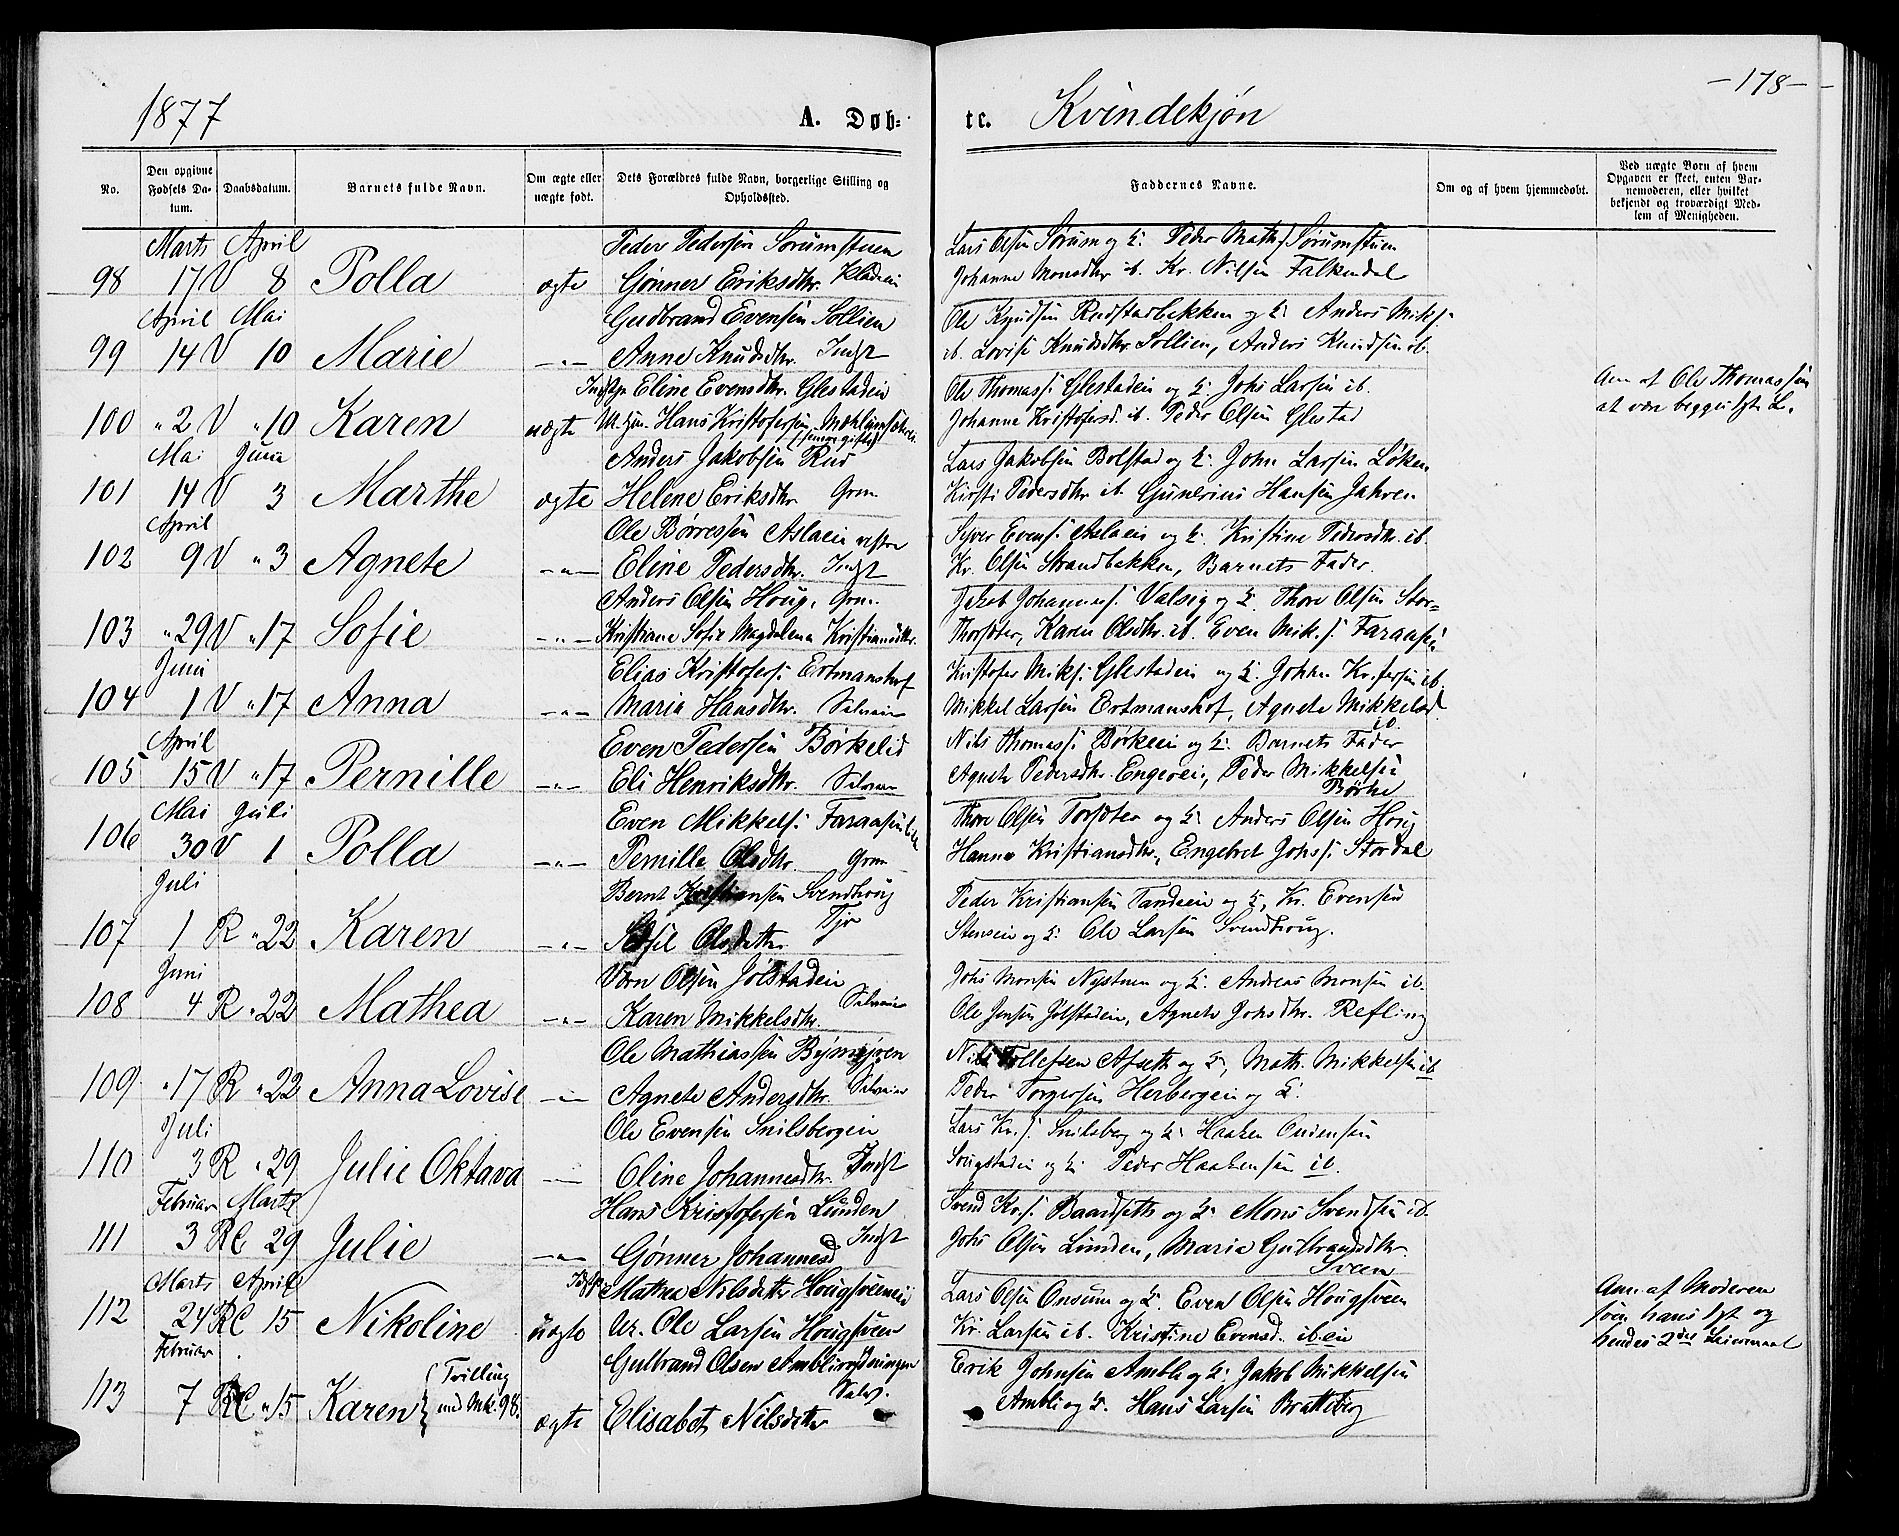 1877
A. Døb-
te. Kvindekjøn
-178-
No.
Den opgivne Fødsels Da-tum.
Daabsdatum.
Barnets fulde Navn.
Om ægte eller uægte født.
Dets Forældres fulde Navn, borgerlige Stilling og Opholdssted.
Faddernes Navne.
Om og af hvem hjemmedøbt.
Ved uægte Børn af hvem Opgaven er skeet, enten Bar-nemoderen, eller hvilket bekjendt og troværdigt Med-lem af Menigheden.
Marts April Peder Pedersen Sørumstuen Lars Olsen Sørum og K. Peder Math.s. Sørumstuen
98 17 V 8 Polla ægte Gønner Eriksdtr. Johanne Monsdtr ib. Kr. Nilsen Falkendal
April Mai Gudbrand Evensen Sollien Ole Knudsen Rudstadbakken og K. Anders Miks.
99 14 V 10 Marie -"- Anne Knudsdtr. Indst ib. Lovise Knudsdtr. Sollien, Anders Knudsen ib.
Eline Evensdtr. Glestadein Ole Thomass. Glestadein og K. Johs Larsen ib. Ann af Ole Thomassen
100 " 2 V " 10 Karen uægte Hans Kristofersen Johanne Kristofersd. ib. Peder Olsen Glestad at være begges 1ste L.
Mai Juni Anders Jakobsen Rud Lars Jakobsen Bolstad og K. John Larsen Løken
101 14 V 3 Marthe ægte Helene Eriksdtr. Grm. Kirsti Pedersdtr ib. Gunerius Hansen Jahren
April Ole Børresen Aslaein vestre Syver Evens. Aslaein og K. Kristine Pedersdtr. ib.
102 9 V " 3 Agnete -"- Eline Pedersdtr. Indst Kr. Olsen Strandbakken, Barnets Fader.
Anders Olsen Houg, Grm. Jakob Johanness. Valsig og K. Thore Olsen Stor-
103 " 29 V " 17 Sofie -"- Kristiane Sofie Magdalena Kristiansdtr. Thorsdter, Karen Olsdtr. ib. Even Mik.s. Faraasen
Juni Elias Kristofers. Ertmanshof Kristofer Miks. Glestadein og K. Johan Kr.fersen ib.
104 1 V " 17 Anna -"- Maria Hansdtr. Selveier Mikkel Larsen Ertmanshof, Agnete Mikkelsd. ib.
April Even Pedersen Børkelid Nils Thomass. Børkeein og K. Barnets Fader
105 15 V " 17 Pernille -"- Eli Henriksdtr. Selveier Agnete Pedersdtr. Engerein, Peder Mikkelsen Børke
Mai Juli Even Mikkels. Faraasen Thore Olsen Torsdter og K. Anders Olsen Houg
106 30 V 1 Polla -"- Pernille Olsdtr. Grm Hanna Kristiansdtr., Engebret Johs.s. Stordal
Juli Bernt Kristiansen Svendhoug Peder Kristiansen Tandein og K, Kr. Evensen
107 1 R " 22 Karen -"- Olsdatter Tjr Stensein og K. Ole Larsen Svendhoug.
Juni Olsen Jølstadein Johs Monsen Nystuen og K. Andreas Monsen ib.
108 4 R " 22 Mathea -"- Karen Mikkelsdtr. Selveier Ole Jensen Jølstadein, Agnete Johsdtr. Refling
Ole Mathiassen Nils Tollefsen Afseth og K, Math. Mikkelsen ib
109 " 17 R " 22 Anna Lovise -"- Agnete Andersdtr. Selveier Peder Torgersen Herbergein og K.
Juli Ole Evensen Snilsbergein Lars Kr.s. Snilsberg og K. Haaken Oudensen
110 3 R " 29 Julie Oktava -"- Oline Johannesdtr. Indst og K. Peder Haakensen ib.
Februar Marts Hans Kristofersen Lunden Svend Kr.s. Baardseth og K. Mons Svendsen ib.
111 3 RC 29 Julie -"- Gønner Johannesd Indst Johs Olsen Linden, Maria Gulbrandsdtr. Sveen
Marts April Mathea Nilsdatter Hougsveenein Lars Olsen Onsum og K. Even Olsen Hougsveen Ann. af Moderen
112 24 RC 15 Nikoline uægte Ole Larsen Hougsveen Kr. Larsen ib. Kristine Evensd. ib.ein som hans 1st og
Februar Gulbrand Olsen Amblirydningen Erik Johnsen Ambli og K. Jakob Mikkelsen hendes 2det Leiermaal
113 7 RC " 15 Karen { Tvilling med Mk. 98. ægte Elisabet Nilsdatter Selv. Ambli og K. Hans Larsen Bratteberg